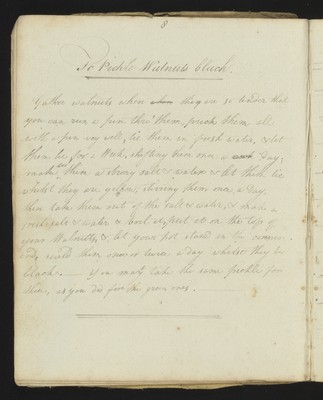 8
To Pickle Walnuts black.
Gather walnuts when they are so tender that
you can run a pin thro' them, prick them all
with a pin very well, lie them in fresh water, & let
them lie for a Week, shifting them once a Day;
make them a strong salt & water & let them lie
whilst they are yellow, stirring them once a Day,
then take them out of the salt & water, & make a
salt & water & boil it, put it on the top of
your Walnuts, & let your pot stand in the corner
scald them once or twice a day whilst they be
black. You may take the same pickle for
them, as you did for the green ones.